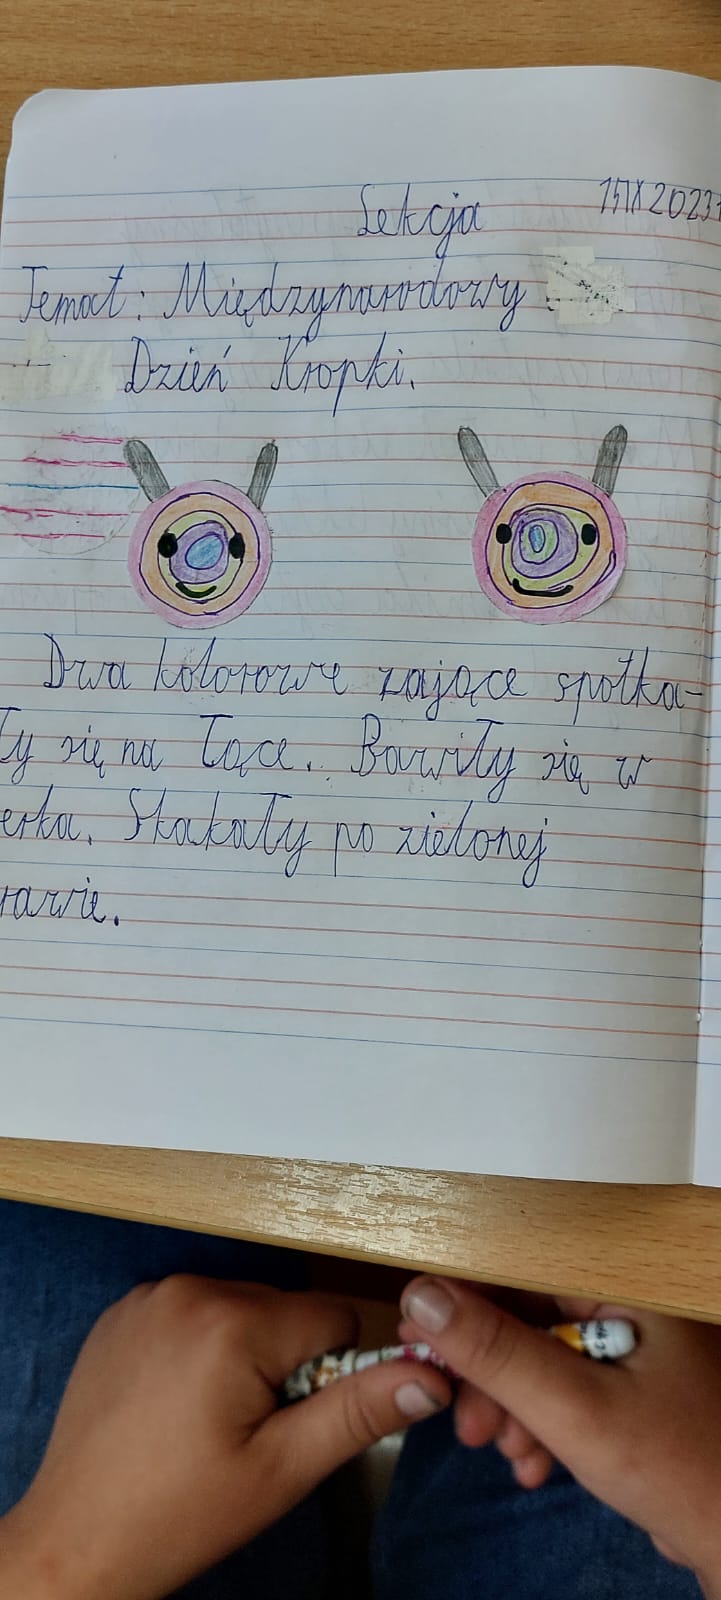 Lekcja 15 IX 2023r
Temat: Międzynarodowy
Dzień Kropki.
Dwa kolorowe zające spotka-
ły się na łące. Bawiły się w
erka. Skakały po zielonej
rawie.